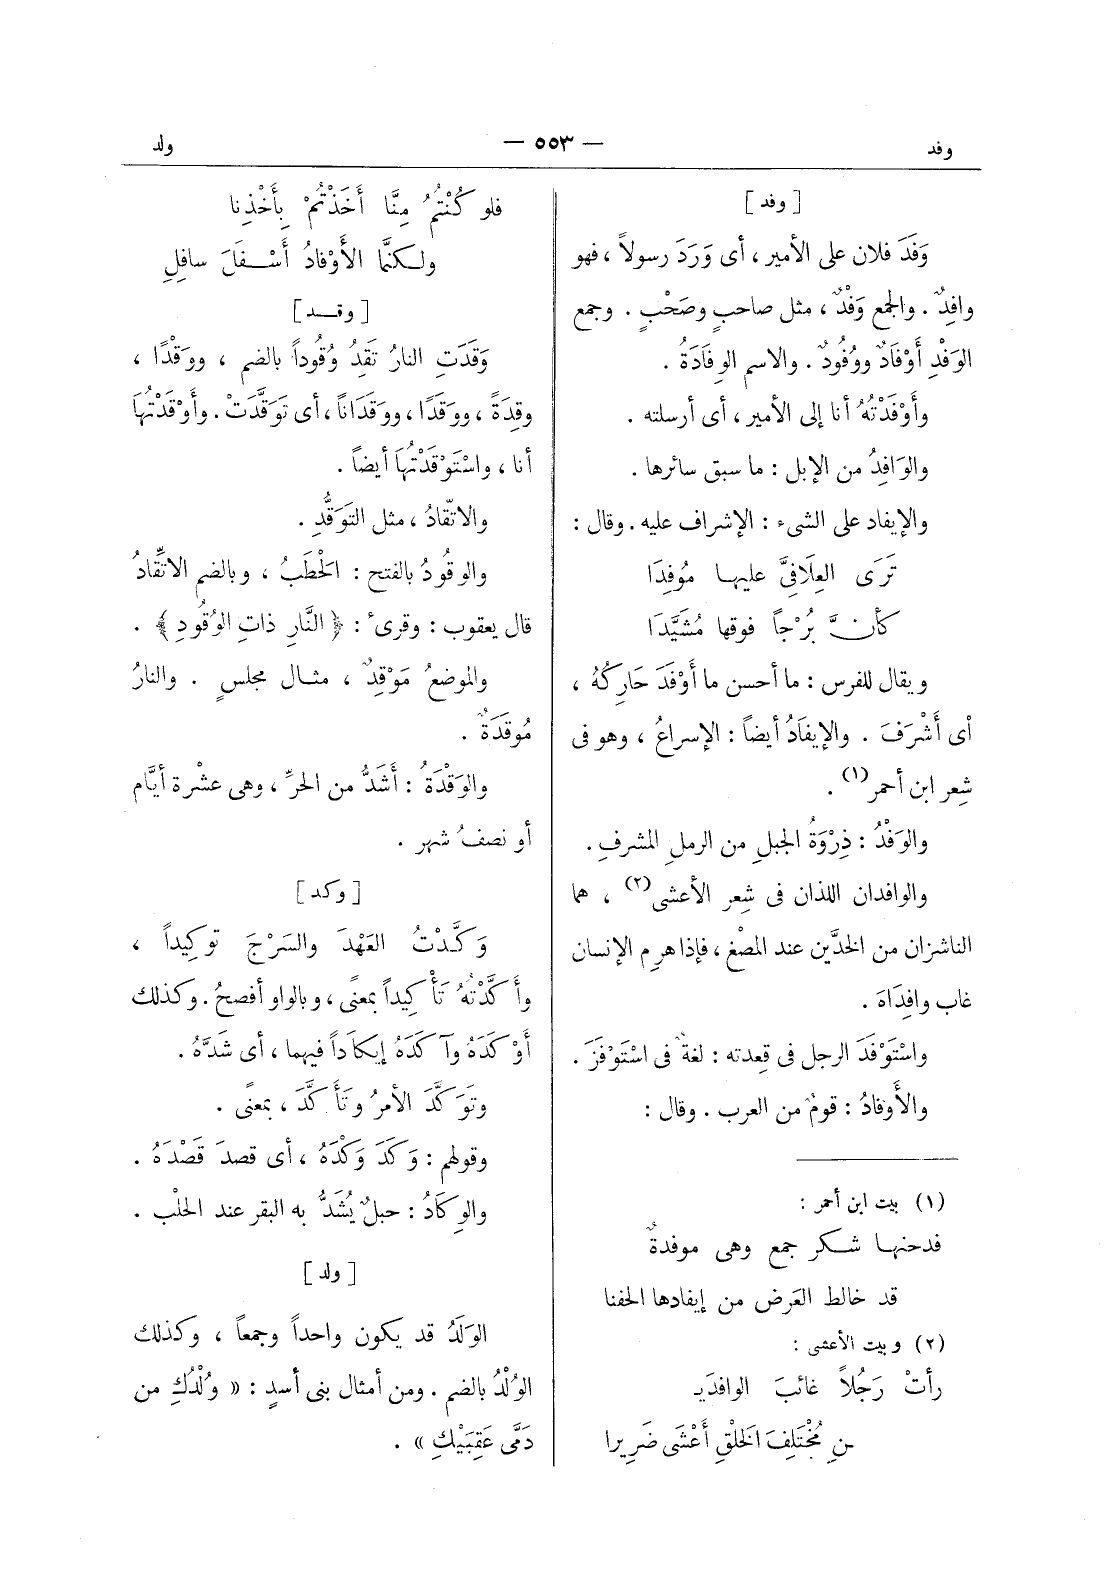 وفد
— ٥٥٣ —
ولد
[ وفد ]
وَفَدَ فلان على الأمير ، أى وَرَدَ رسولاً ، فهو
وافِدٌ . والجمع وَفْدٌ ، مثل صاحبٍ وصَحْبٍ . وجمع
الوَفْدِ أَوْفَادٌ ووُفُودٌ . والاسم الوِفَادَةُ .
وأَوْفَدْتُهُ أنا إلى الأمير ، أى أرسلته .
والوَافِدُ من الإبل : ما سبق سائرها .
والإيفاد على الشىء : الإشراف عليه . وقال :
تَرَى العِلَافِىَّ عليها مُوفِدَا
كأنَّ بُرْجاً فوقها مُشَيَّدَا
ويقال للفرس : ما أحسن ما أَوْفَدَ حَارِكُهُ ،
أى أَشْرَفَ . والإيفَادُ أيضاً : الإسراعُ ، وهو فى
شِعر ابن أحمر(١) .
والوَفْدُ : ذِرْوَةُ الجبلِ من الرملِ المشرفِ .
والوافدان اللذان فى شِعر الأعشى(٢) ، هما
الناشزان من الخدَّين عند المضْغ ، فإذا هرِم الإنسان
غاب وافِدَاهُ .
واسْتَوْفَدَ الرجل فى قِعدته : لغةٌ فى اسْتَوْفَزَ .
والأَوفادُ : قومٌ من العرب . وقال :
(١) بيت ابن أحمر :
فدحنها شكر جمع وهى موفدةٌ
قد خالط العَرض من إيفادها الحفنا
(٢) وبيت الأعشى :
رأتْ رَجُلاً غائبَ الوافدَيـ
ـنِ مُخْتَلِفَ الخَلْقِ أَعْشَى ضَرِيرا
فلو كُنْتُمُ مِنَّا أَخَذْتُمْ بِأَخْذِنا
ولكنَّما الأَوْفادُ أَسْفَلَ سافِلِ
[ وقد ]
وَقَدَتِ النارُ تَقِدُ وُقُوداً بالضم ، ووَقْدًا ،
وقِدَةً ، ووقَدًا ، ووقَدَاناً ، أى تَوَقَّدَتْ . وأَوْقَدْتُهَا
أنا ، واسْتَوْقَدْتُهَا أيضاً .
والاتّقادُ ، مثل التَوَقُّدِ .
والوقُودُ بالفتح : الحَطَبُ ، وبالضم الاتِّقادُ
قال يعقوب : وقرئ : ﴿ النَّارِ ذاتِ الوُقُودِ ﴾ .
والموضعُ مَوْقِدٌ ، مثال مجلسٍ . والنارُ
مُوقَدَةٌ .
والوَقْدَةُ : أَشَدُّ من الحرِّ ، وهى عشْرة أيَّام
أو نصفُ شهر .
[ وكد ]
وَكَّدْتُ العَهْدَ والسَرْجَ توكيداً ،
وأَكَّدْتُهُ تَأْكيداً بمعنًى ، وبالواو أفصحُ . وكذلك
أَوْكَدَهُ وآكَدَهُ إيكَاداً فيهما ، أى شدَّهُ .
وتَوَكَّدَ الأمرُ وتَأَكَّدَ ، بمعنًى .
وقولهم : وَكَدَ وَكْدَهُ ، أى قصدَ قَصْدَهُ .
والوِكَادُ : حبلٌ يُشَدُّ به البقر عند الحلْب .
[ ولد ]
الوَلَدُ قد يكون واحداً وجمعاً ، وكذلك
الوُلْدُ بالضم . ومن أمثال بنى أسدٍ : « وُلْدُكِ من
دَمَّى عَقِبَيْكِ » .